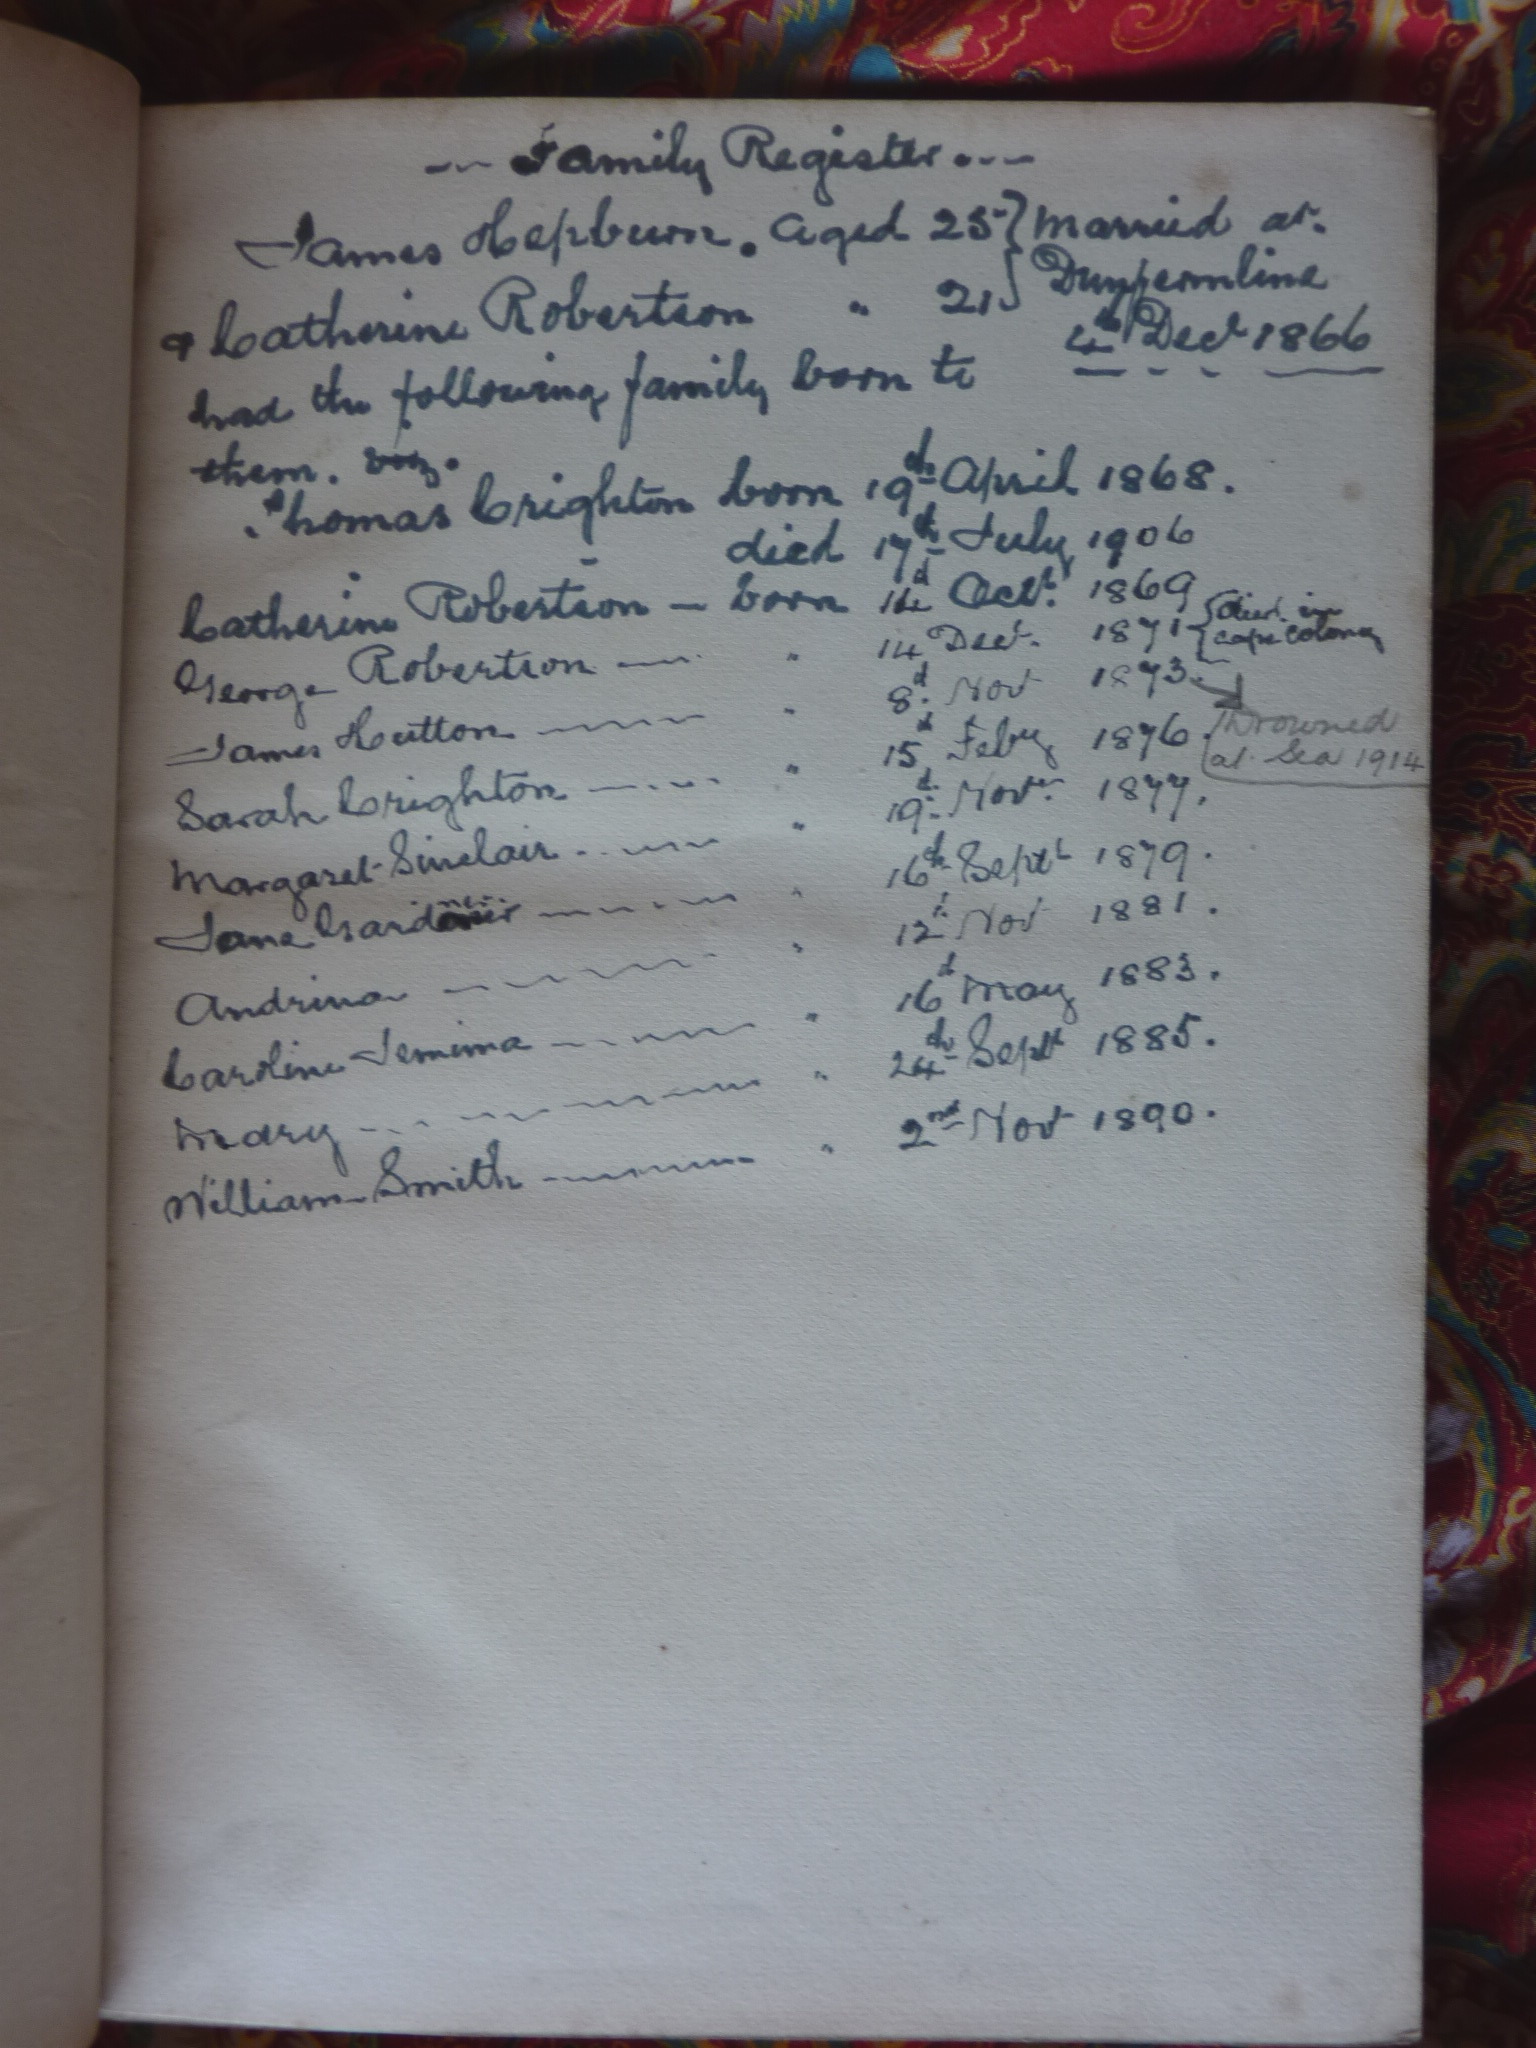 Family Register
James Hepburn. aged 25 } Married at.
& Catherine Robertson " 21 } Dunfermline
4th Decr 1866
had the following family born to
them. viz.
Thomas Crighton born 19th April 1868.
died 17th July 1906
Catherine Robertson — born Octr. 1869
George Robertson — " 14 Decr. 1871 { died in Cape Colony
James Hutton — " 8d. Nov 1873.
Sarah Crighton — " 15d Feby 1876.
Drowned
at Sea 1914
Margaret Sinclair — " 19d. Novr. 1877.
Jane Gardner — " 16th Septr 1879.
Andrina — " 12 Nov 1881.
Caroline Jemima — " 16d May 1883.
Mary — " 24th Septr 1885.
William Smith — " 2nd Nov 1890.